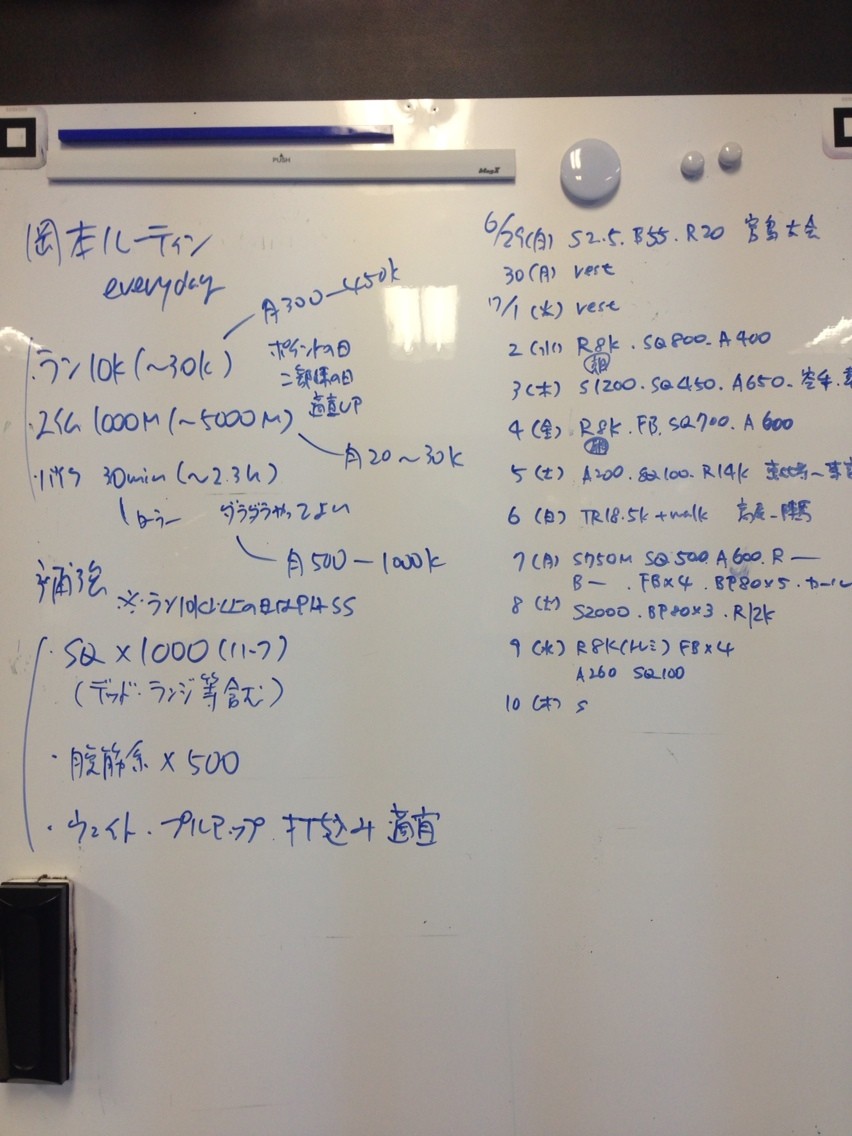 PUSH
MagX
岡本ルーティン
everyday
月300-450k
・ラン10k(~30k)
ポイントの日
二部練の日
適宜UP
・スイム1000M(~5000M)
月20~30k
・バイク 30min(~2.3h)
ローラー
ダラダラやってよい
月500-1000k
補強
※ラン10k以上の日はPASS
・SQ×1000(ハーフ)
(デッド・ランジ等含む)
・腹筋系×500
・ウェイト・プルアップ.打込み 適宜
6/29(日) S2.5.B55.R20 宮島大会
30(月) rest
7/1(火) rest
2(水) R8k.SQ800.A400
朝
3(木) S1200.SQ450.A650.空手.
4(金) R8k.FB.SQ700.A600
朝
5(土) A200.SQ100.R14k
6(日) TR18.5k+walk
7(月) S750M SQ500.A600.R—
B— .FB×4.BP80×5.カール
8(火) S2000.BP80×3.R12k
9(水) R8k(トレミ) FB×4
A260 SQ100
10(木) S